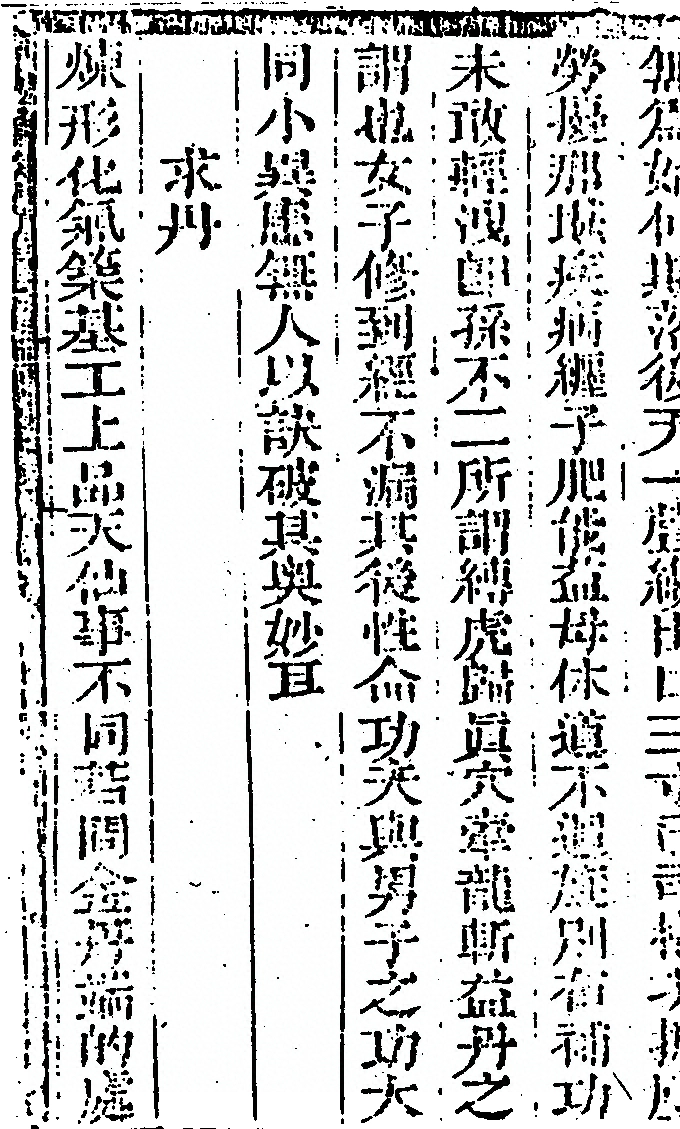 後天一
勞擾那堪疾病纏子肥能益母休道不迴旋別有補功
未敢輕洩即孫不二所謂縛虎歸眞穴牽龍漸益丹之
謂也女子修到經不漏其後性命功夫與男子之功大
同小異處無人以訣破其奧妙耳
求丹
煉形化氣築基工上品天仙事不同若問金丹端的處